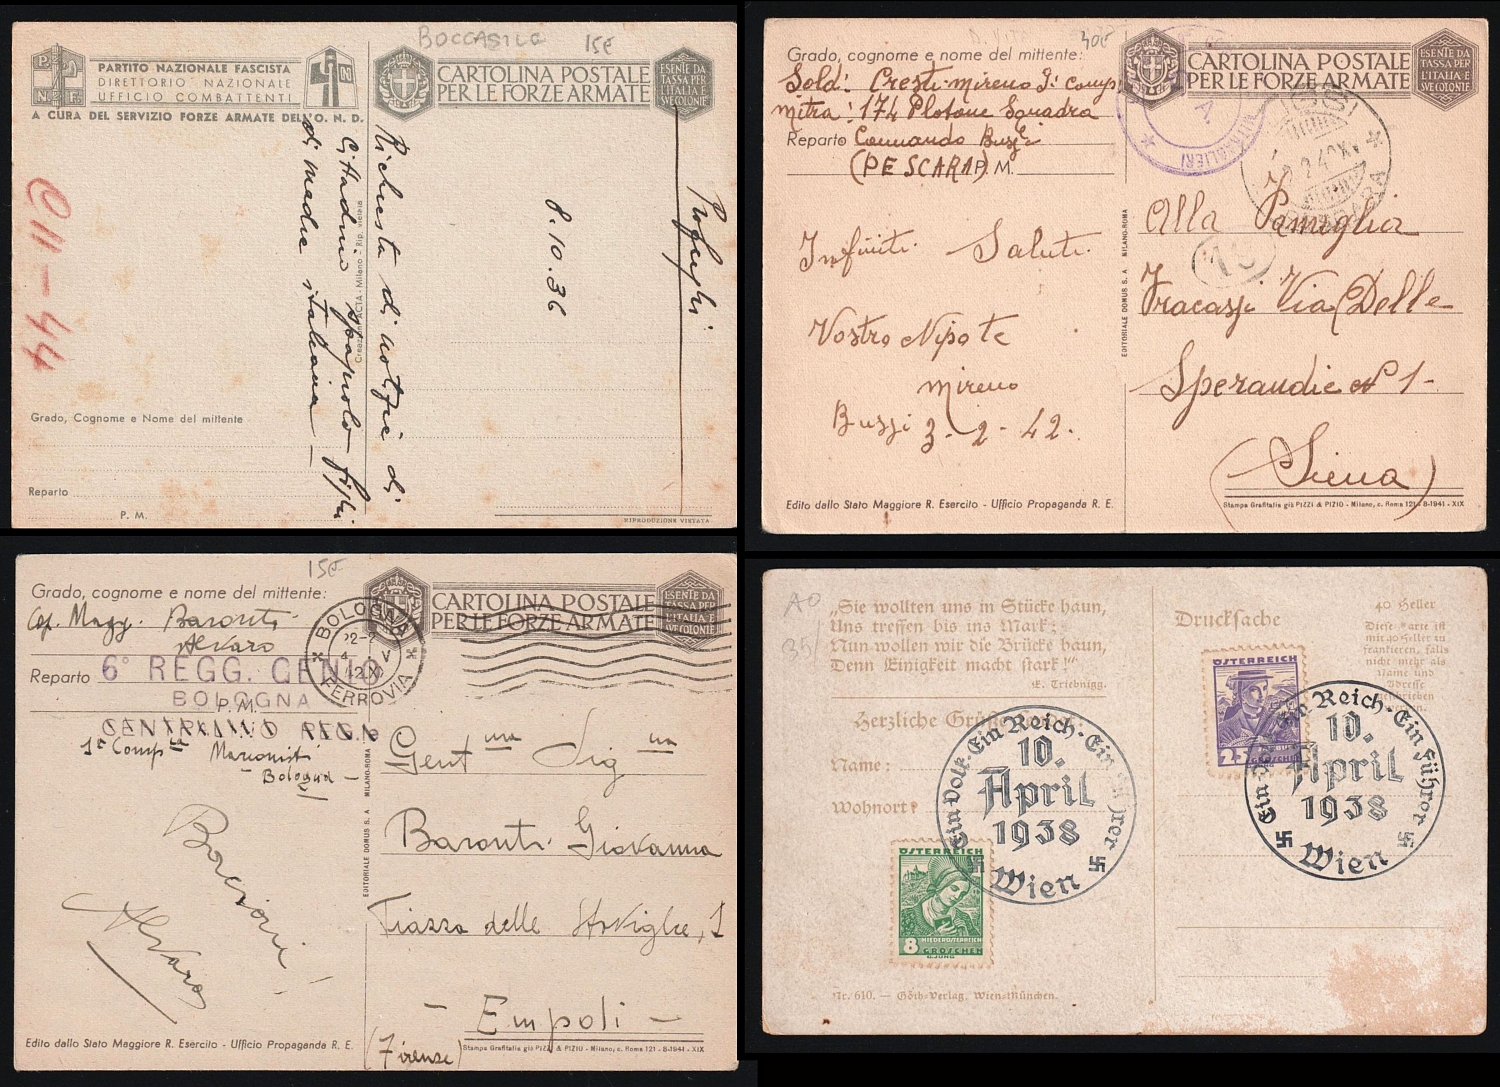 BOCCASILE 15€
P. N. F.
PARTITO NAZIONALE FASCISTA
DIRETTORIO NAZIONALE
UFFICIO COMBATTENTI
A CURA DEL SERVIZIO FORZE ARMATE DELL'O. N. D.
CARTOLINA POSTALE
PER LE FORZE ARMATE
ESENTE DA
TASSA PER
L'ITALIA E
SUE COLONIE
Profughi
8.10.36
Richiesta di notizie di
cittadino spagnolo figlio
di madre italiana
C11-44
ACTA - Milano - Rip. vietata
Grado, Cognome e Nome del mittente
Reparto
P. M.
RIPRODUZIONE VIETATA
30€
Grado, cognome e nome del mittente:
Sold: Cresti mireno I: comp.
mitra: 174 Plotone Squadra
Reparto Comando Bussi
(PESCARA) P. M.
CARTOLINA POSTALE
PER LE FORZE ARMATE
ESENTE DA
TASSA PER
L'ITALIA E
SUE COLONIE
Infiniti Saluti
Vostro Nipote
mireno
Bussi 3-2-42.
Alla Famiglia
Fracassi Via Delle
Sperandie N 1-
(Siena)
EDITORIALE DOMUS S. A. MILANO-ROMA
Edito dallo Stato Maggiore R. Esercito - Ufficio Propaganda R. E.
Stampa Grafitalia già PIZZI & PIZIO - Milano, c. Roma 121 - 8-1941 - XIX
15€
Grado, cognome e nome del mittente:
Cap. Magg. Baronti
Alvaro
Reparto 6° REGG. GENIO
BOLOGNA
P. M.
1a Compia Marconisti
- Bologna -
CARTOLINA POSTALE
PER LE FORZE ARMATE
ESENTE DA
TASSA PER
L'ITALIA E
SUE COLONIE
BOLOGNA
FERROVIA
Gent ma Sig na
Baronti Giovanna
Piazza delle Stoviglie, 1
- Empoli -
(Firenze)
Alvaro
EDITORIALE DOMUS S. A. MILANO-ROMA
Edito dallo Stato Maggiore R. Esercito - Ufficio Propaganda R. E.
Stampa Grafitalia già PIZZI & PIZIO - Milano, c. Roma 121 - 8-1941 - XIX
A0
35/
„Sie wollten uns in Stücke haun,
Uns treffen bis ins Mark;
Nun wollen wir die Brücke baun,
Denn Einigkeit macht stark!“
K. Triebnigg.
Herzliche Grüße sendet:
Name:
Wohnort:
Drucksache
40 Heller
Diese Karte ist
mit 40 Heller zu
frankieren, falls
nicht mehr als
Name und
Adresse
geschrieben
werden.
ÖSTERREICH
25
GROSCHEN
Ein Volk·Ein Reich·Ein Führer
10.
April
1938
Wien
Ein Volk·Ein Reich·Ein Führer
10.
April
1938
Wien
ÖSTERREICH
NIEDERÖSTERREICH
8 GROSCHEN
Nr. 610. — Göth-Verlag, Wien-München.